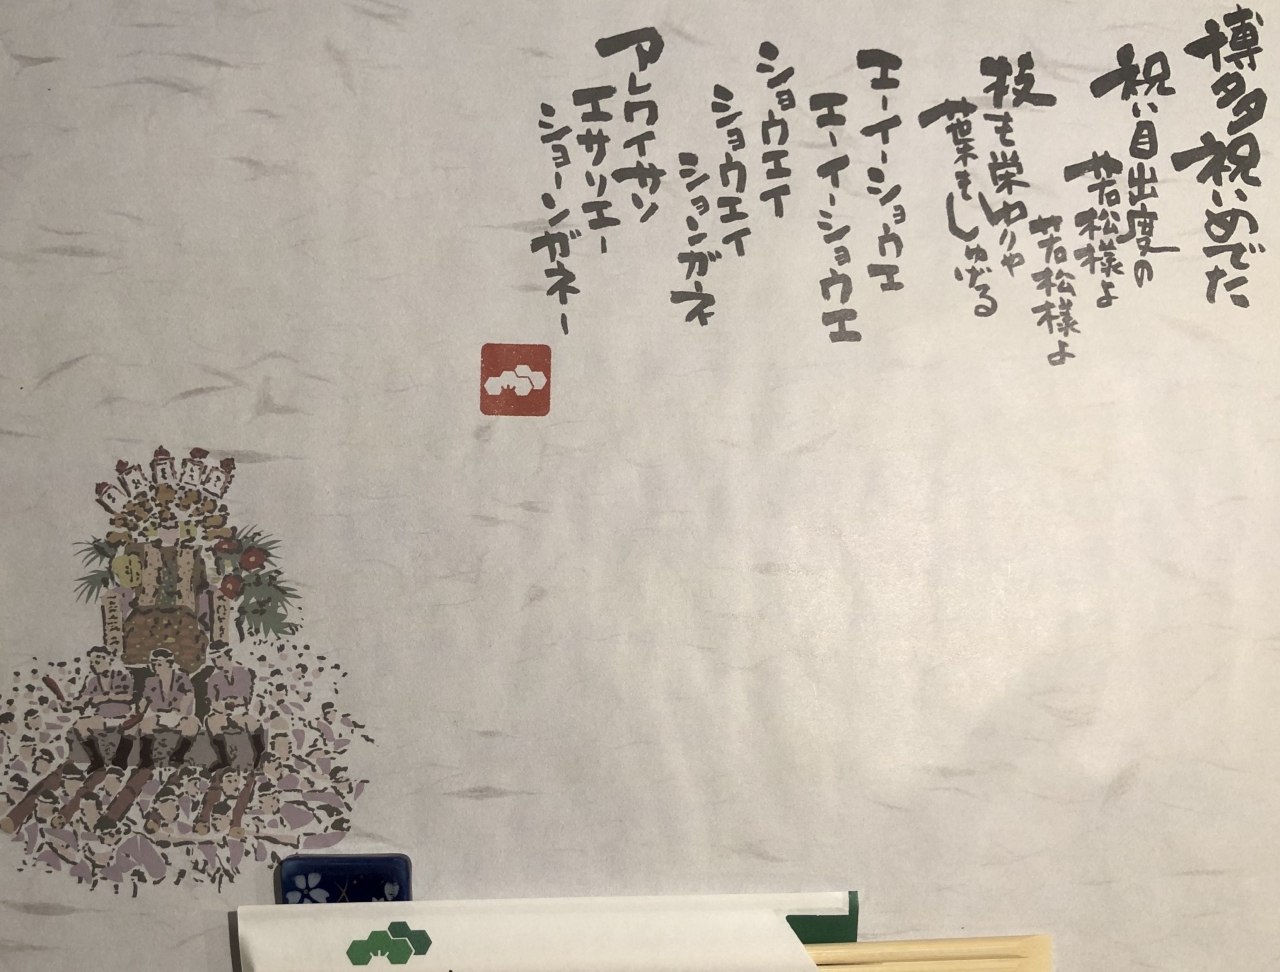 博多祝いめでた
祝い目出度の
若松様よ
若松様よ
枝も栄ゆりゃ
葉もしゅげる
エーイーショウエ
エーイーショウエ
ショウエイ
ショウエイ
ションガネ
アレワイサソ
エサソエー
ショーンガネー